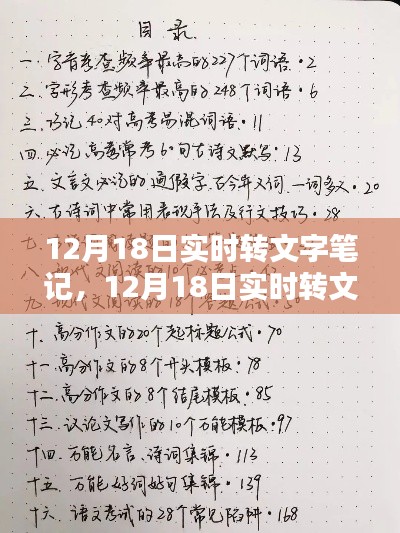 目录
一.字音考查频率最高的227个词语·2
二.字形考查频率最高的248个词语·6
三.巧记40对高考易混词语·11
四.必记高考常考60句古诗文默写·13
五.文言文必记的通假字.古今异义词.一词多义·20
六.古诗词中常用表现手法及行文技巧·28
12月18日实时转文字笔
记，12月18日实时转文
十.高分作文的20个起标题公式·70
十一.高分作文的8个开头模板·78
十二.高分作文的8个结尾模板·85
十三.议论文写作的10个万能模板·97
十四.万能名言、诗词集锦·113
十五.万能好词好句集锦·139
十六.语文考试的28个常见陷阱·168